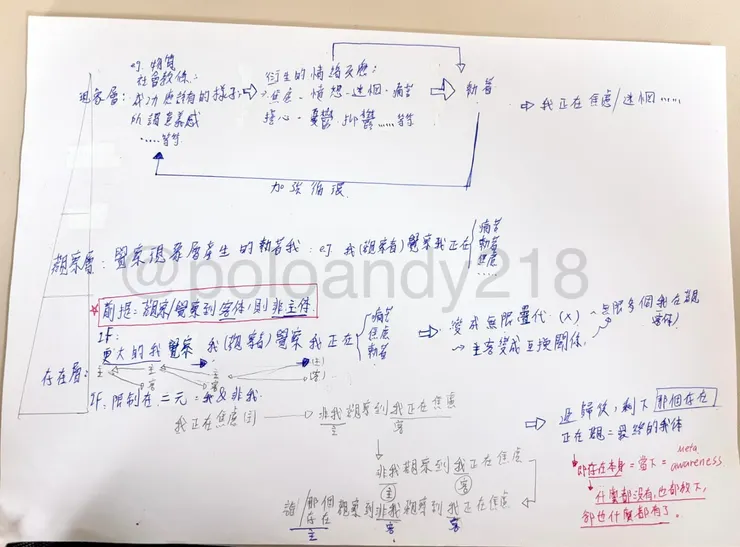 eg. 物質
社會教條:
現象層: 成功應該有的樣子
所謂意義感
.....等等
衍生的情緒反應:
焦慮、憤怒、迷惘、痛苦
擔心、憂鬱、抑鬱......等等
執著
我正在焦慮/迷惘......
加強循環
觀察層: 覺察現象層產生的執著我: eg 我(觀察者)覺察我正在
痛苦
執著
焦慮
.....
@bolgandy218
前提=觀察/覺察到客体,則非主体
If:
更大的我覺察 我(觀察者)覺察 我正在
痛苦
焦慮
執著
變成無限疊代 (x)
無限多個我在觀
→ 主客變成互換關係
存在層:
主 主 主 (主)
客 客 (客)
If: 限制在二元=我&非我
我正在焦慮(主)
非我觀察到我正在焦慮
主 客
非我觀察到我正在焦慮
主 客
誰/那個存在觀察到非我觀察到我正在焦慮
主 客 客
剩下那個存在
正在觀=最終的我体
即存在本身=當下=meta awareness
什麼都沒有,也都放下,
卻也什麼都有了。